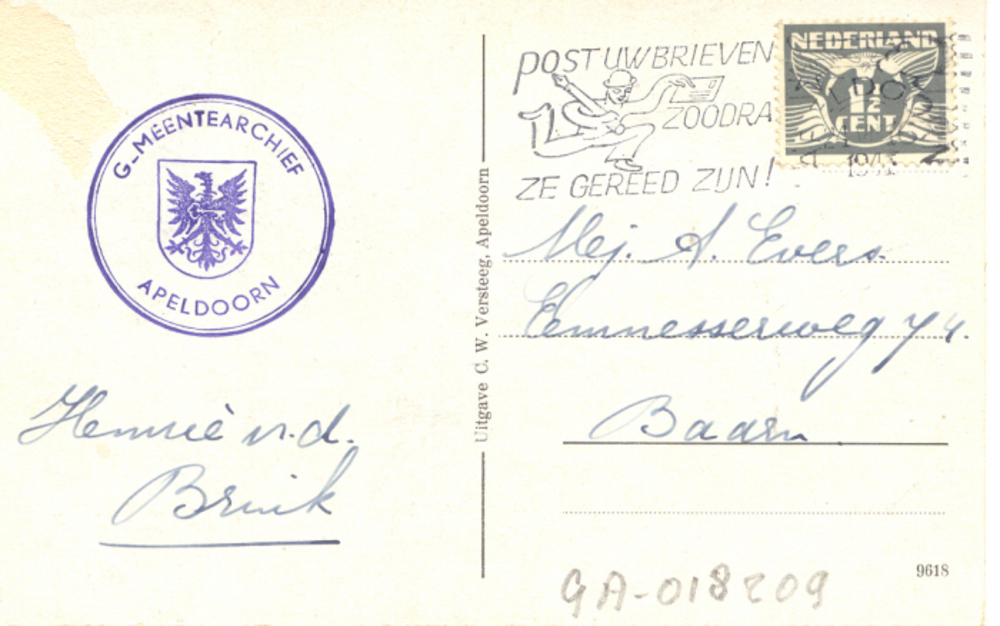 G_MEENTEARCHIEF
APELDOORN
Henriè v.d.
Brink
Uitgave C. W. Versteeg, Apeldoorn
POST UW BRIEVEN
ZOODRA
ZE GEREED ZIJN!
NEDERLAND
1½
CENT
Mej. A. Evers.
Eemnesserweg 74.
Baarn
9618
GA-018209